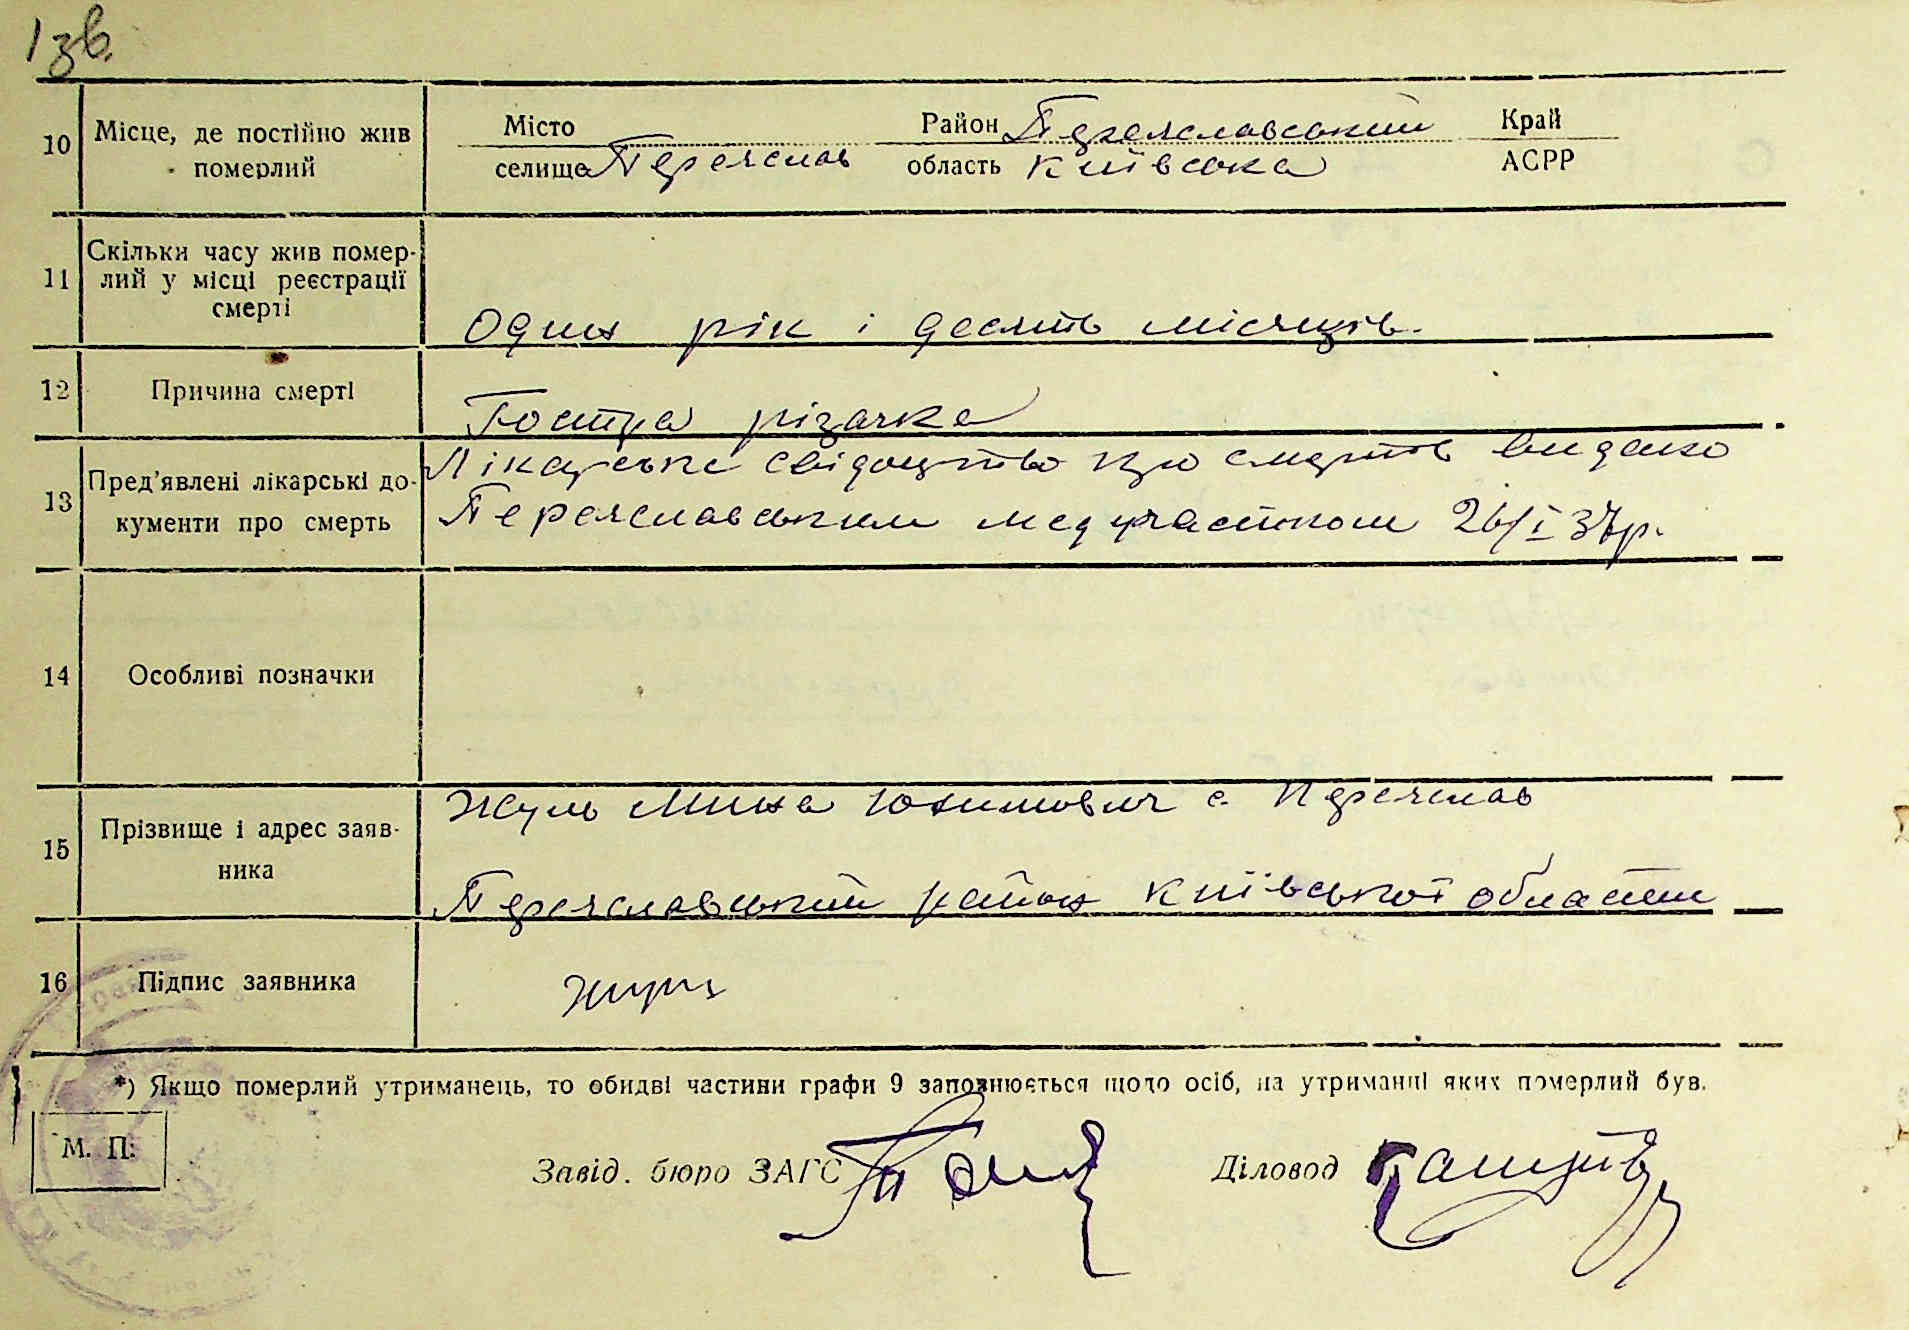 1 зв.
10 Місце, де постійно жив померлий
Місто
селище Переяслав
Район Переяславський
область Київська
Край
АСРР
11 Скільки часу жив помер-
лий у місці реєстрації
смерті
Один рік і десять місяців.
12 Причина смерті
Гостра різачка
13 Пред'явлені лікарські до-
кументи про смерть
Лікарське свідоцтво про смерть видано
Переяславським медучастком 26/I 37р.
14 Особливі позначки
15 Прізвище і адрес заяв-
ника
Жуль Мина Юхимович с. Переяслав
Переяславський район Київської области
16 Підпис заявника
*) Якщо померлий утриманець, то обидві частини графи 9 заповнюється щодо осіб, на утриманні яких померлий був.
М. П.
Завід. бюро ЗАГС
Діловод